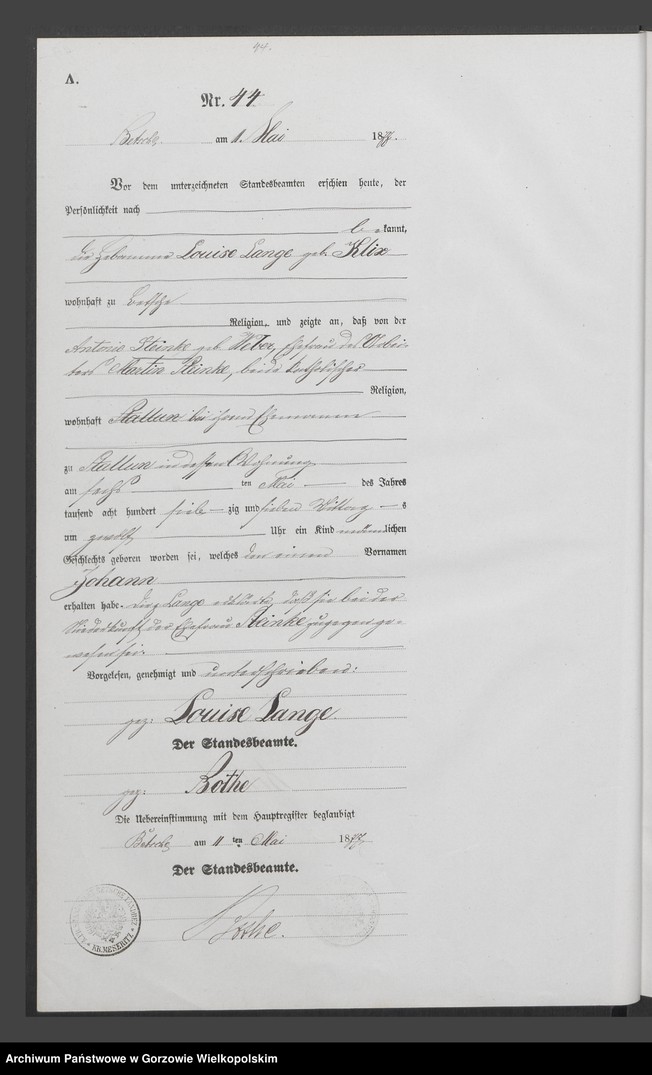 44.
A.
Nr. 44
Betsche am 11. Mai 1877.
Vor dem unterzeichneten Standesbeamten erschien heute, der
Persönlichkeit nach
be kannt,
die Hebamme Louise Lange geb. Klix
wohnhaft zu Betsche
Religion, und zeigte an, daß von der
Antonie Steinke geb. Weber, Ehefrau des Arbei-
ters Martin Steinke, beide katholischer
Religion,
wohnhaft Stallun bei ihrem Ehemanne
zu Stallun in dessen Wohnung
am sechs ten Mai des Jahres
tausend acht hundert sieb zig und sieben Mittag s
um zwölf Uhr ein Kind männlichen
Geschlechts geboren worden sei, welches den einen Vornamen
Johann
erhalten habe. Die Lange erklärte, daß sie bei der
Niederkunft der Ehefrau Steinke zugegen ge-
wesen sei.
Vorgelesen, genehmigt und unterschrieben:
gez: Louise Lange
Der Standesbeamte.
gez: Bothe
Die Uebereinstimmung mit dem Hauptregister beglaubigt
Betsche am 11 ten Mai 1877
Der Standesbeamte.
Bothe.
KR. MESERITZ
Archiwum Państwowe w Gorzowie Wielkopolskim